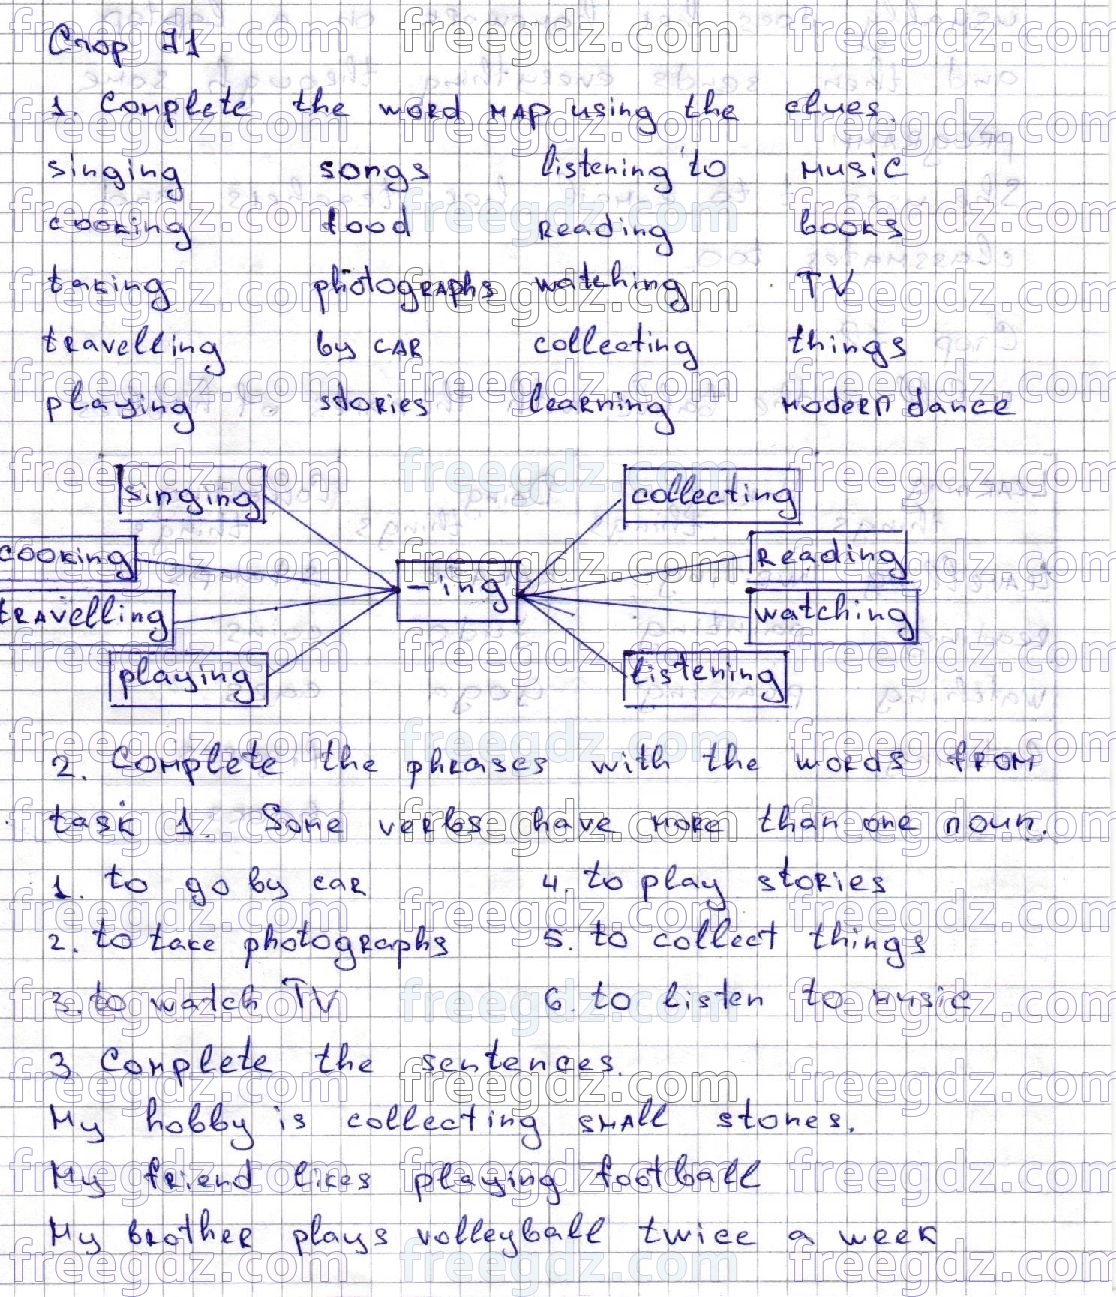 Стор 71
1. Complete the word map using the clues.
singing songs listening to music
cooking food reading books
taking photographs watching TV
travelling by car collecting things
playing stories learning modern dance
singing collecting
cooking reading
-ing
travelling watching
playing listening
2. Complete the phrases with the words from
task 1. Some verbs have more than one noun.
1. to go by car 4. to play stories
2. to take photographs 5. to collect things
3. to watch TV 6. to listen to music
3 Complete the sentences.
My hobby is collecting small stones.
My friend likes playing football
My brother plays volleyball twice a week
freegdz.com